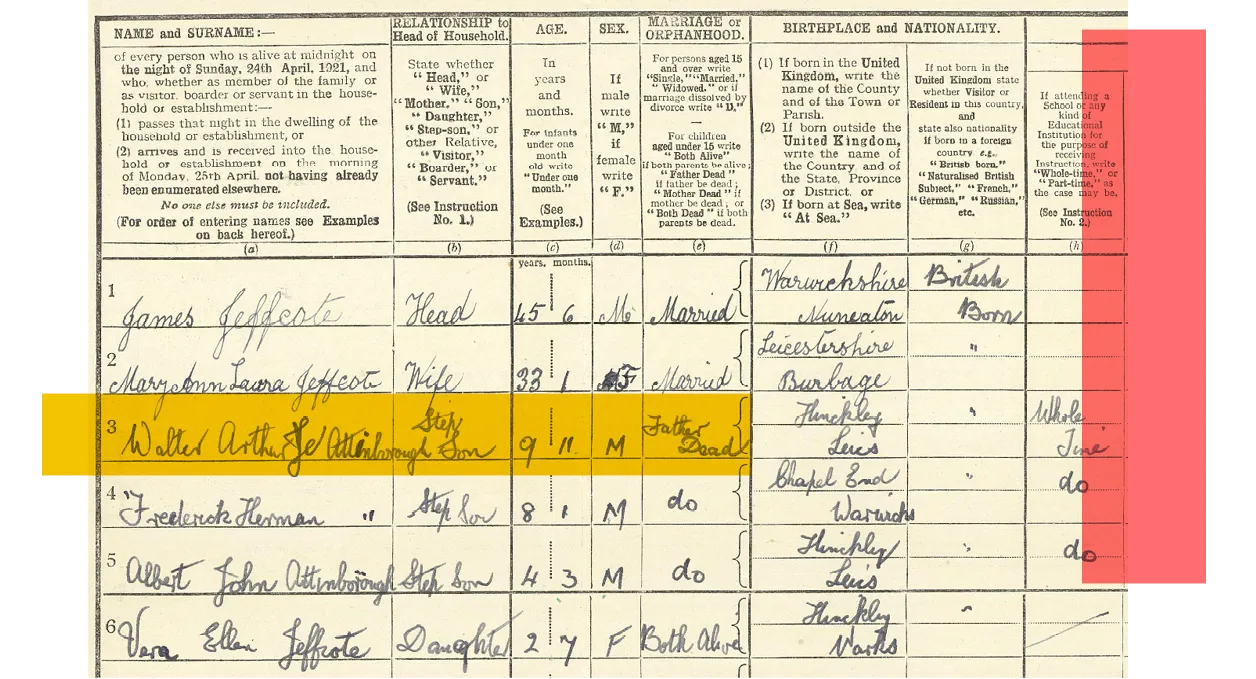 NAME and SURNAME:—
of every person who is alive at midnight on
the night of Sunday, 24th April, 1921, and
who, whether as member of the family or
as visitor, boarder or servant in the house-
hold or establishment:—
(1) passes that night in the dwelling of the
household or establishment, or
(2) arrives and is received into the house-
hold or establishment on the morning
of Monday, 25th April, not having already
been enumerated elsewhere.
No one else must be included.
(For order of entering names see Examples
on back hereof.)
(a)
RELATIONSHIP to
Head of Household.
State whether
"Head," or
"Wife,"
"Mother," "Son,"
"Daughter,"
"Step-son," or
other Relative,
"Visitor,"
"Boarder," or
"Servant."
(See Instruction
No. 1.)
(b)
AGE.
In
years
and
months.
For infants
under one
month
old write
"Under one
month."
(See
Examples.)
(c)
years. months.
SEX.
If
male
write
"M,"
if
female
write
"F."
(d)
MARRIAGE or
ORPHANHOOD.
For persons aged 15
and over write
"Single," "Married,"
"Widowed," or if
marriage dissolved by
divorce write "D."
—
For children
aged under 15 write
"Both Alive"
if both parents be alive;
"Father Dead"
if father be dead;
"Mother Dead" if
mother be dead; or
"Both Dead" if both
parents be dead.
(e)
BIRTHPLACE and NATIONALITY.
(1) If born in the United
Kingdom, write the
name of the County
and of the Town or
Parish.
(2) If born outside the
United Kingdom,
write the name of
the Country, and of
the State, Province
or District, or
(3) If born at Sea, write
"At Sea."
(f)
If not born in the
United Kingdom state
whether Visitor or
Resident in this country,
and
state also nationality
if born in a foreign
country e.g.,
"British born,"
"Naturalised British
Subject," "French,"
"German," "Russian,"
etc.
(g)
If attending a
School or any
kind of
Educational
Institution for
the purpose of
receiving
Instruction, write
"Whole-time," or
"Part-time," as
the case may be.
(See Instruction
No. 2.)
(h)
1 Warwickshire British
James Jeffcote Head 45 6 M Married Nuneaton Born
2 Leicestershire "
Mary Ann Laura Jeffcote Wife 33 1 F Married Burbage
3 Step Father Hinckley " Whole
Walter Arthur Je Attinborough Son 9 11 M Dead Leics Time
4 Chapel End " do
Frederick Herman " Step Son 8 1 M do Warwicks
5 Hinckley " do
Albert John Attinborough Step Son 4 3 M do Leics
6 Hinckley "
Vera Ellen Jeffcote Daughter 2 7 F Both Alive